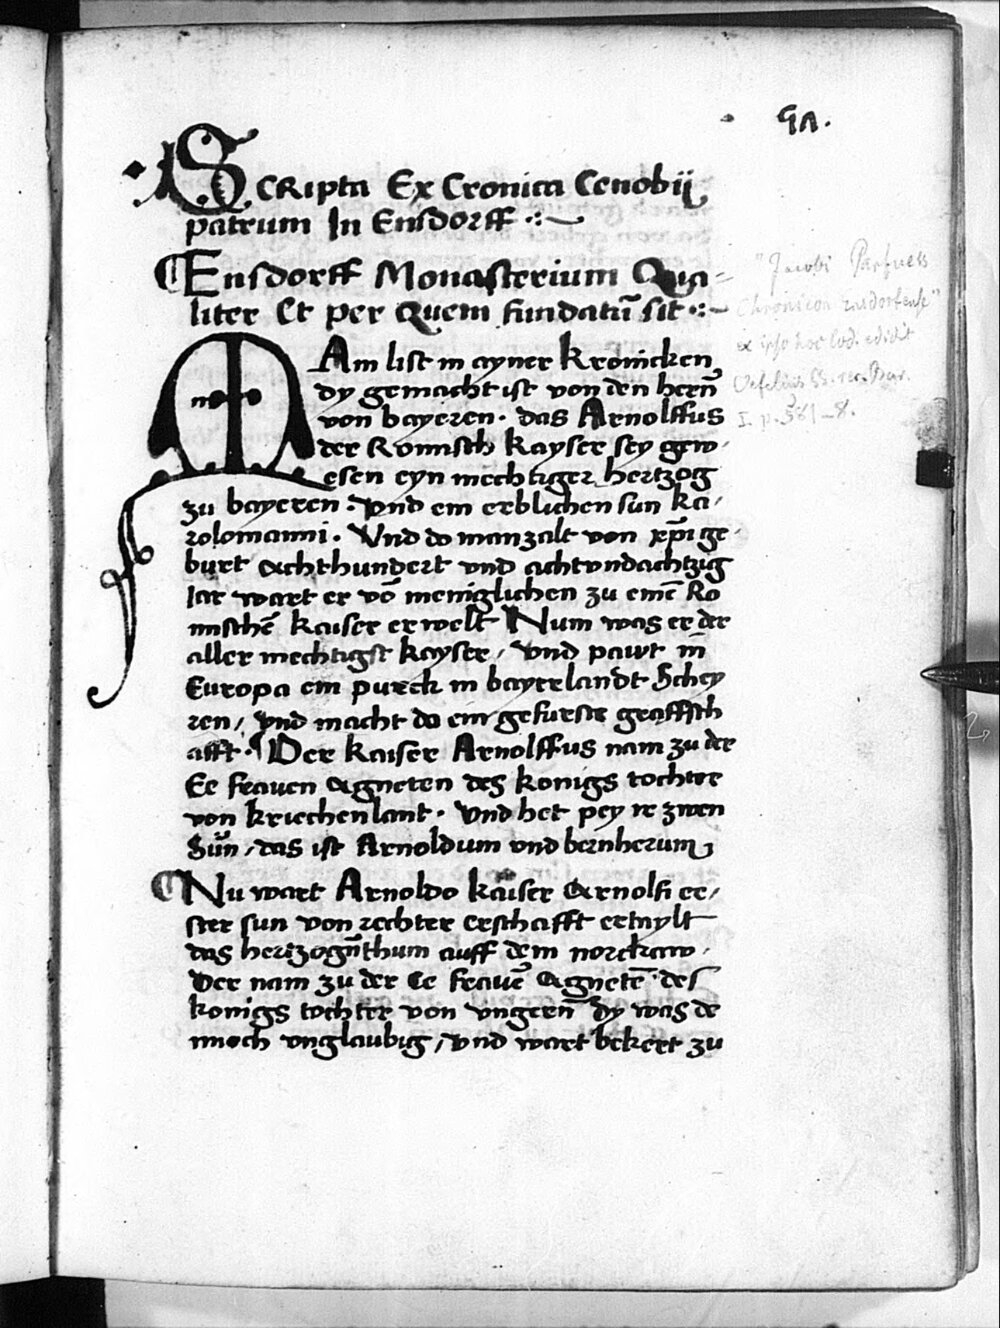 91.
Scripta Ex Cronica Cenobij
patrum In Ensdorff
Ensdorff Monasterium Qua-
liter Et per Quem fundatū sit
MAn list in ayner kronicken
dy gemacht ist von den hern̄
von bayeren. das Arnolffus
der Romisch kayser sey gew-
esen eyn mechtiger hertzog
zu bayeren. vnd ein erblichen sun ka-
rolomanni. Vnd do man zalt von xp̄i ge-
burt Achthundert vnd achtvndachtzig
Iar wart er vō meniglichen zu einē Ro
mischē kaiser erwelt Num was er der
aller mechtigst kayser, vnd pawt in
Europa ein purck in bayrlandt Schey
ren, vnd macht do ein gefurste graffsch
afft. Der kaiser Arnolffus nam zu der
Ee frauen Agneten des konigs tochter
von kriechenlant. vnd het pey ir zwen
Sün, das ist Arnoldum vnd bernherum
Nu wart Arnoldo kaiser Arnolfi er-
ster sun von rechter erschafft ertaylt
das hertzogn̄thum auff dem norckaw.
Der nam zu der Ee frauē Agnetē des
konigs tochter von vngern̄ dy was de
nnoch vnglaubig, vnd wart bekert zu
"Jacobi Parfuess
Chronicon Ensdorfense"
ex ipso hoc cod. edidit
Oefelius SS. rer. Boic.
I. p. 581-8.